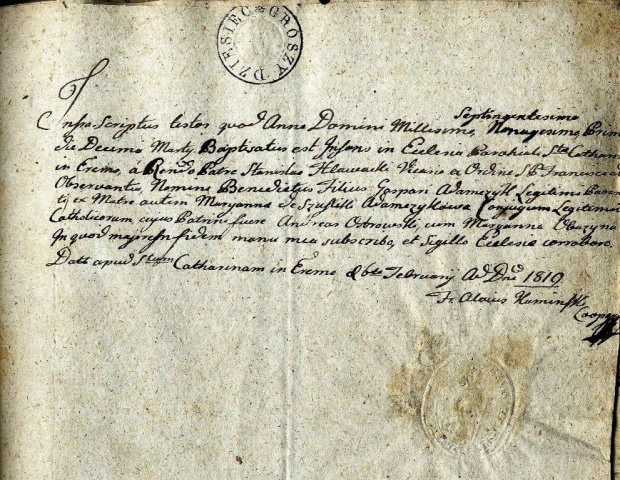 DZIESIEC GROSZY
Septingentesimo
Infra Scriptus testor quod Anno Domini Millesimo, Nonagesimo, Prim
Die Decima Martÿ Baptisatus est Infans in Ecclesia Parochiali Stæ Cathari
in Eremo, à Rendo Patre Stanislao Vicario ex Ordine S. Francisci
Observantiæ, Nomine Benedictus Filius Gaspari Adamczyk Legitimi
ex Matre autem Maryanna de Adamczykowa Conjugum Legitimo
Catholicorum, cujus Patrini fuere Andreas Ostrowski, cum Maryanna
In quod majorem fidem manu mea subscribo, et Sigillo Ecclesiæ corroboro.
Datt apud Stam Catharinam in Eremo d 6ta Februarÿ Ad Dni 1819
Fr. Aloius